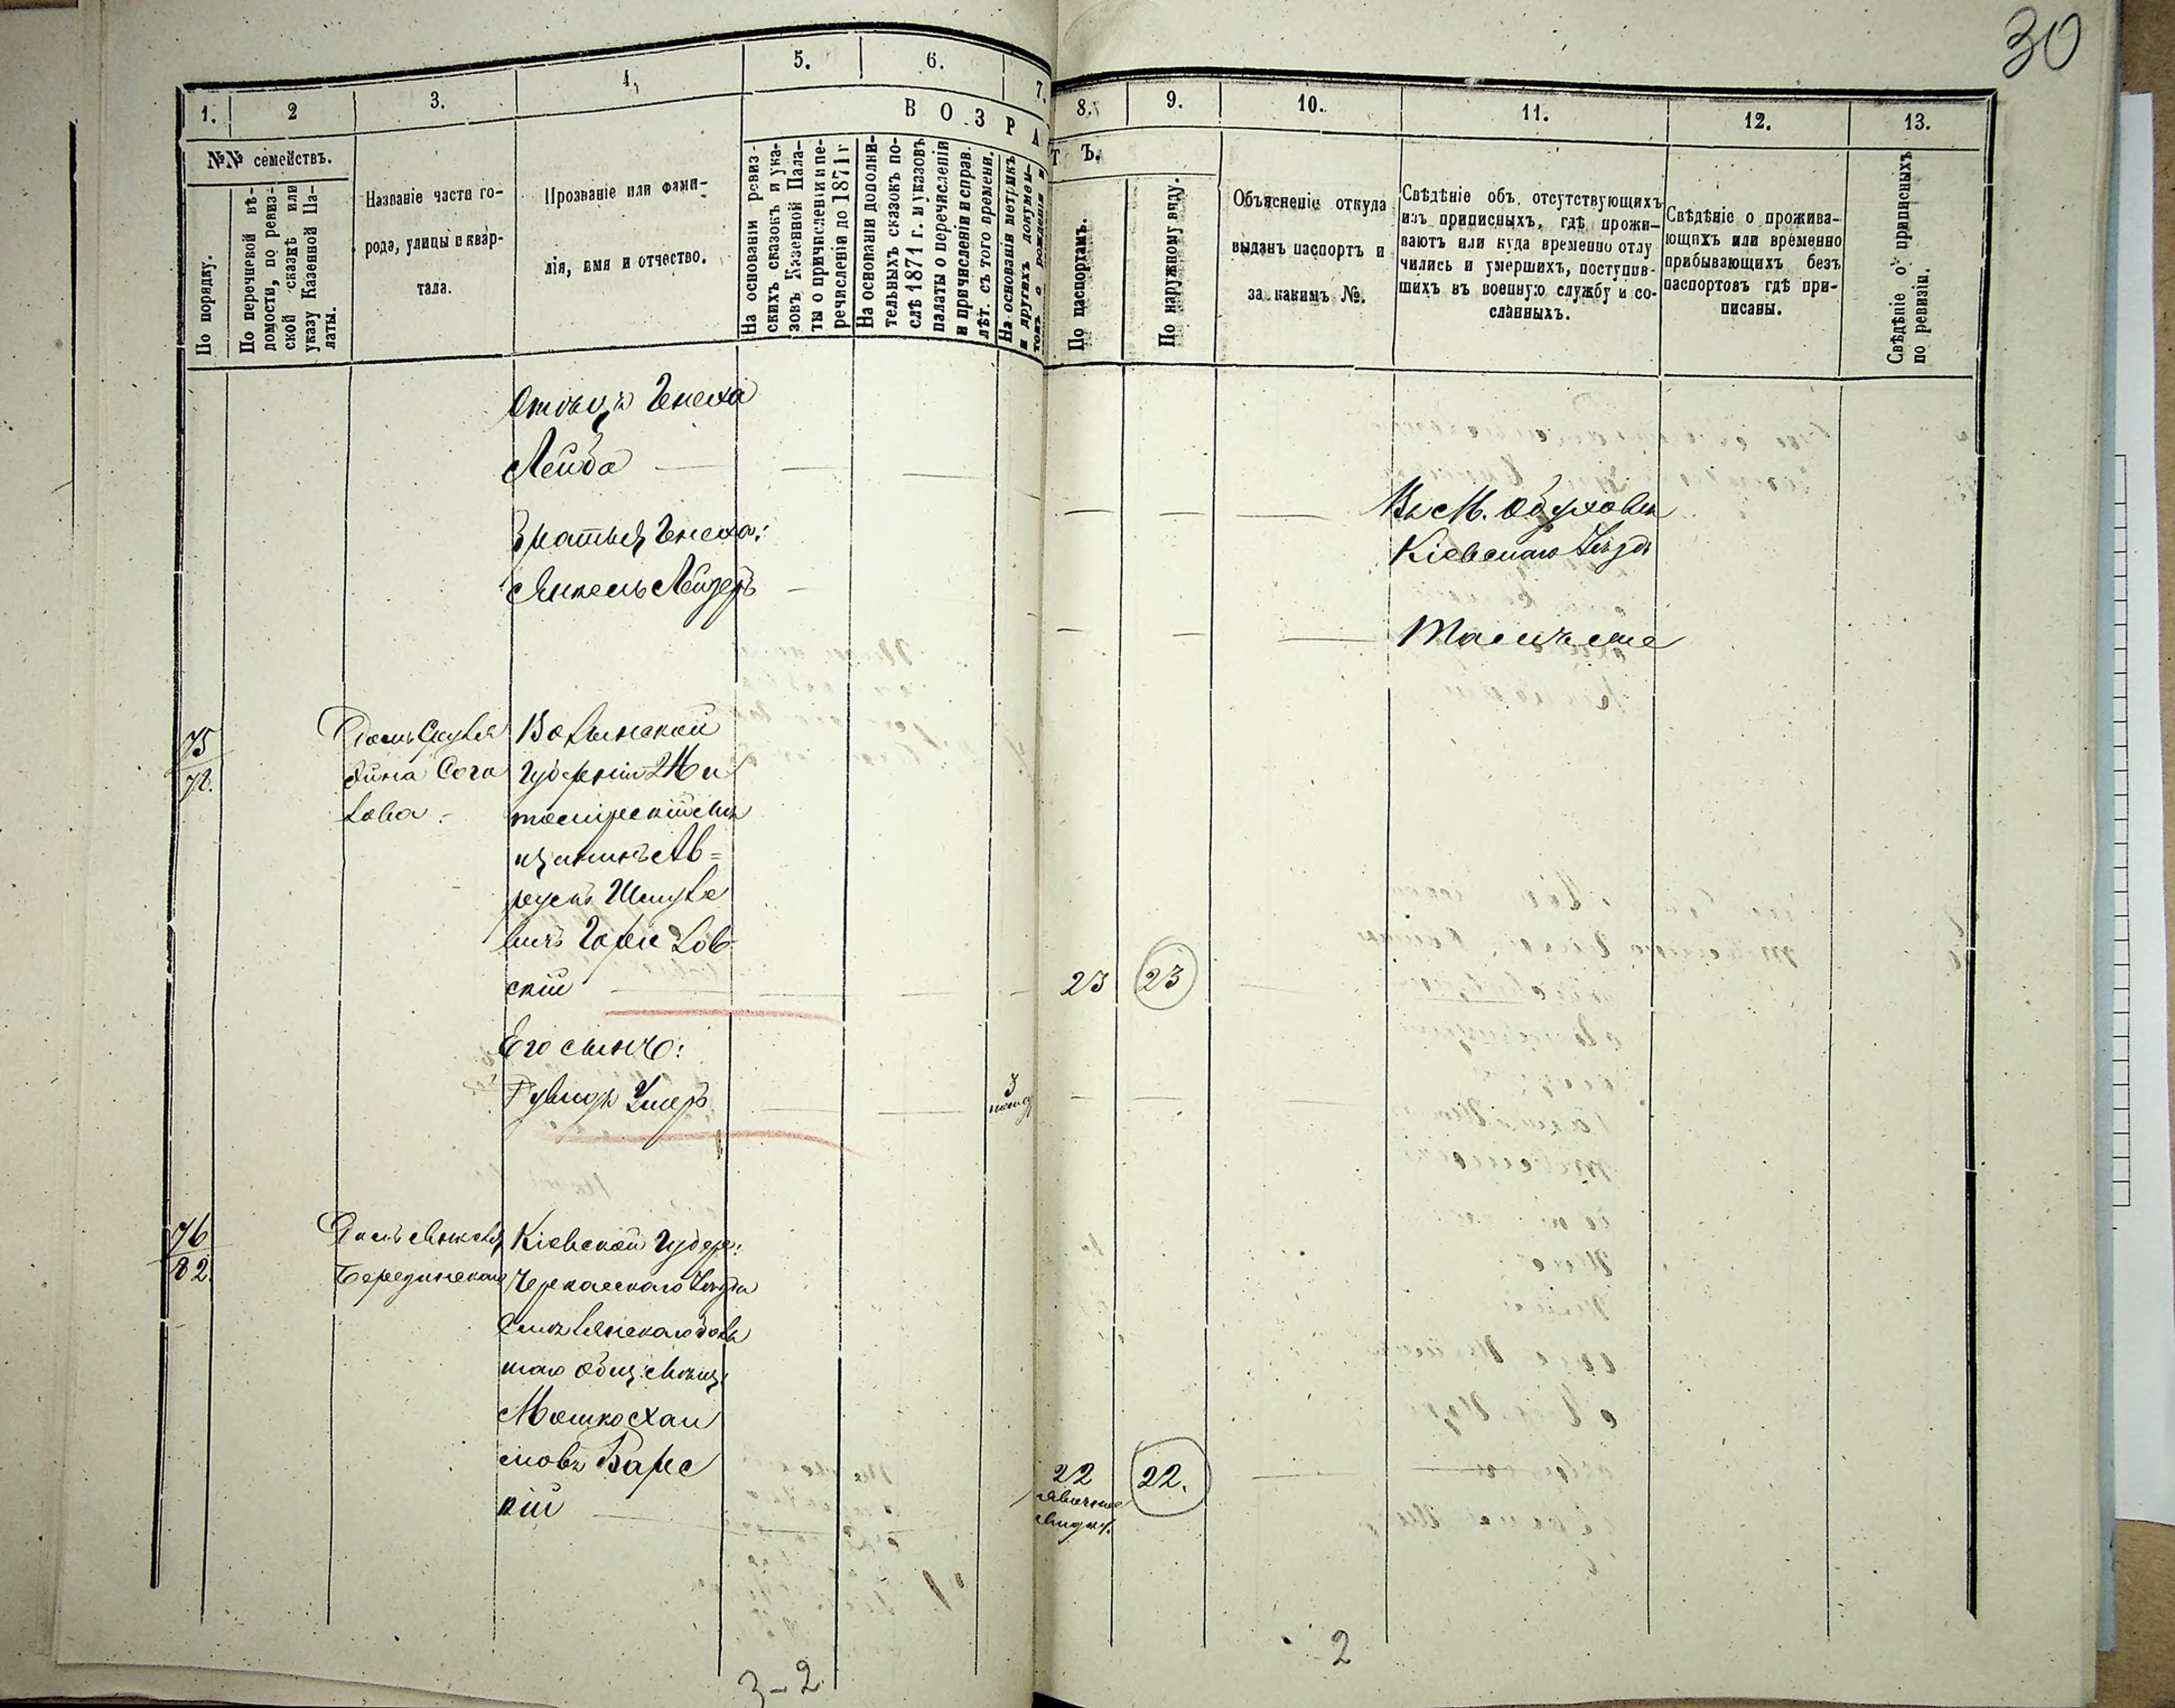 30
1.
2
3.
4.
5.
6.
7.
8.
9.
10.
11.
12.
13.
В О З Р А
Т Ъ.
№№ семействъ.
По порядку.
По перечневой вѣ-
домости, по ревиз-
ской сказкѣ или
указу Казенной Па-
латы.
Названіе части го-
рода, улицы и квар-
тала.
Прозваніе или фами-
лія, имя и отчество.
На основаніи ревиз-
скихъ сказокъ и ука-
зовъ Казенной Пала-
ты о причисленіи и пе-
речисленіи до 1871 г
На основаніи дополни-
тельныхъ сказокъ по-
слѣ 1871 г. и указовъ
палаты о перечисленіи
и причисленіи и справ.
лѣт. съ того времени.
На основаніи метрикъ
и другихъ докумен-
товъ о рожденіи и
По паспортамъ.
По наружному виду.
Объясненіе откуда
выданъ паспортъ и
за какимъ №.
Свѣдѣніе объ отсутствующихъ
изъ приписныхъ, гдѣ прожи-
ваютъ или куда временно отлу
чились и умершихъ, поступив-
шихъ въ военную службу и со-
сланныхъ.
Свѣдѣніе о прожива-
ющихъ или временно
прибывающихъ безъ
паспортовъ гдѣ при-
писаны.
Свѣдѣніе о приписныхъ
по ревизіи.
Отецъ Генеха
Лейба
Въ М. Обуховѣ
Кіевскаго Уѣзда
Братья Генеха:
Янкель Лейзеръ
Тамъ же
75
Домъ
Волынской
Губерніи Жи
томірскій мѣ
щанинъ Ав=
румъ Шмуле
вичъ Горбовскій
23
23
Его сынъ:
Рувинъ Умеръ
3
76
82.
Домъ
Кіевской Губер:
Черкасскаго Уѣзда
Смѣлянскаго
Общ: мѣщ:
Мошко Хаи
мовъ Барс
кій
22
22.
3-2
2